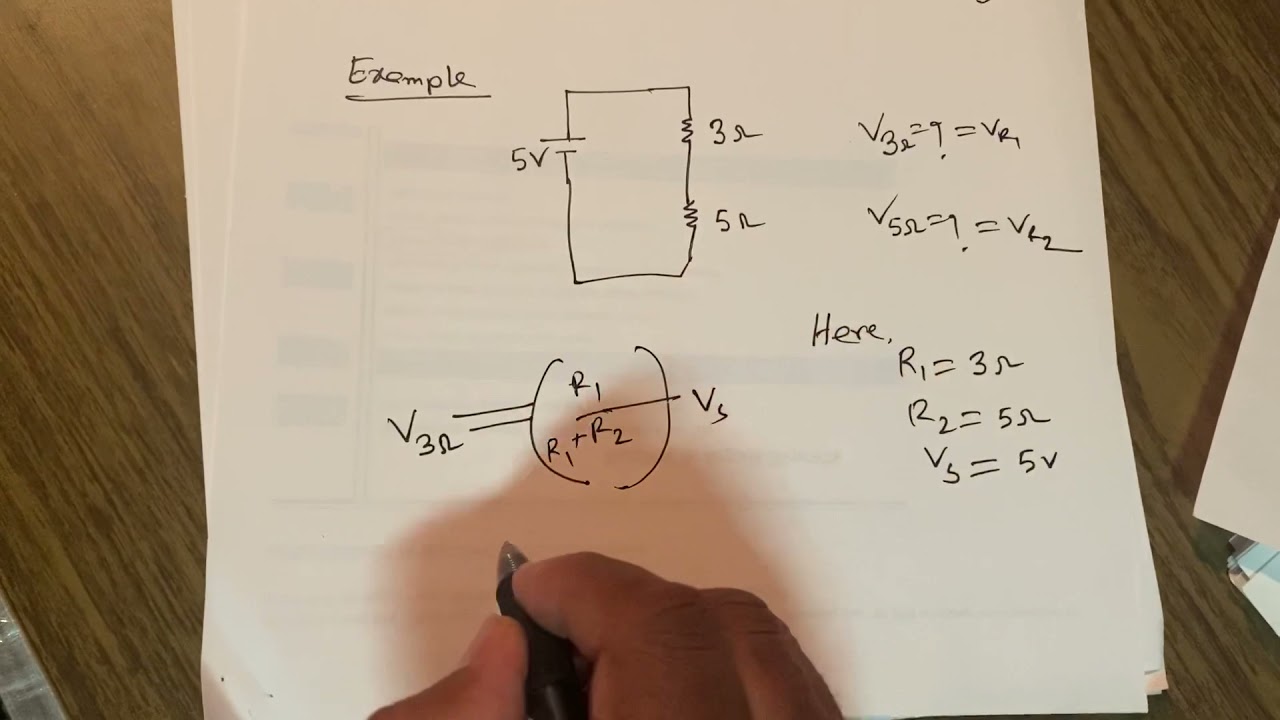 Example
5V
3Ω
5Ω
V3Ω=? = VR1
V5Ω=? = VR2
Here,
R1 = 3Ω
R2 = 5Ω
Vs = 5v
V3Ω = (R1 / R1+R2) Vs